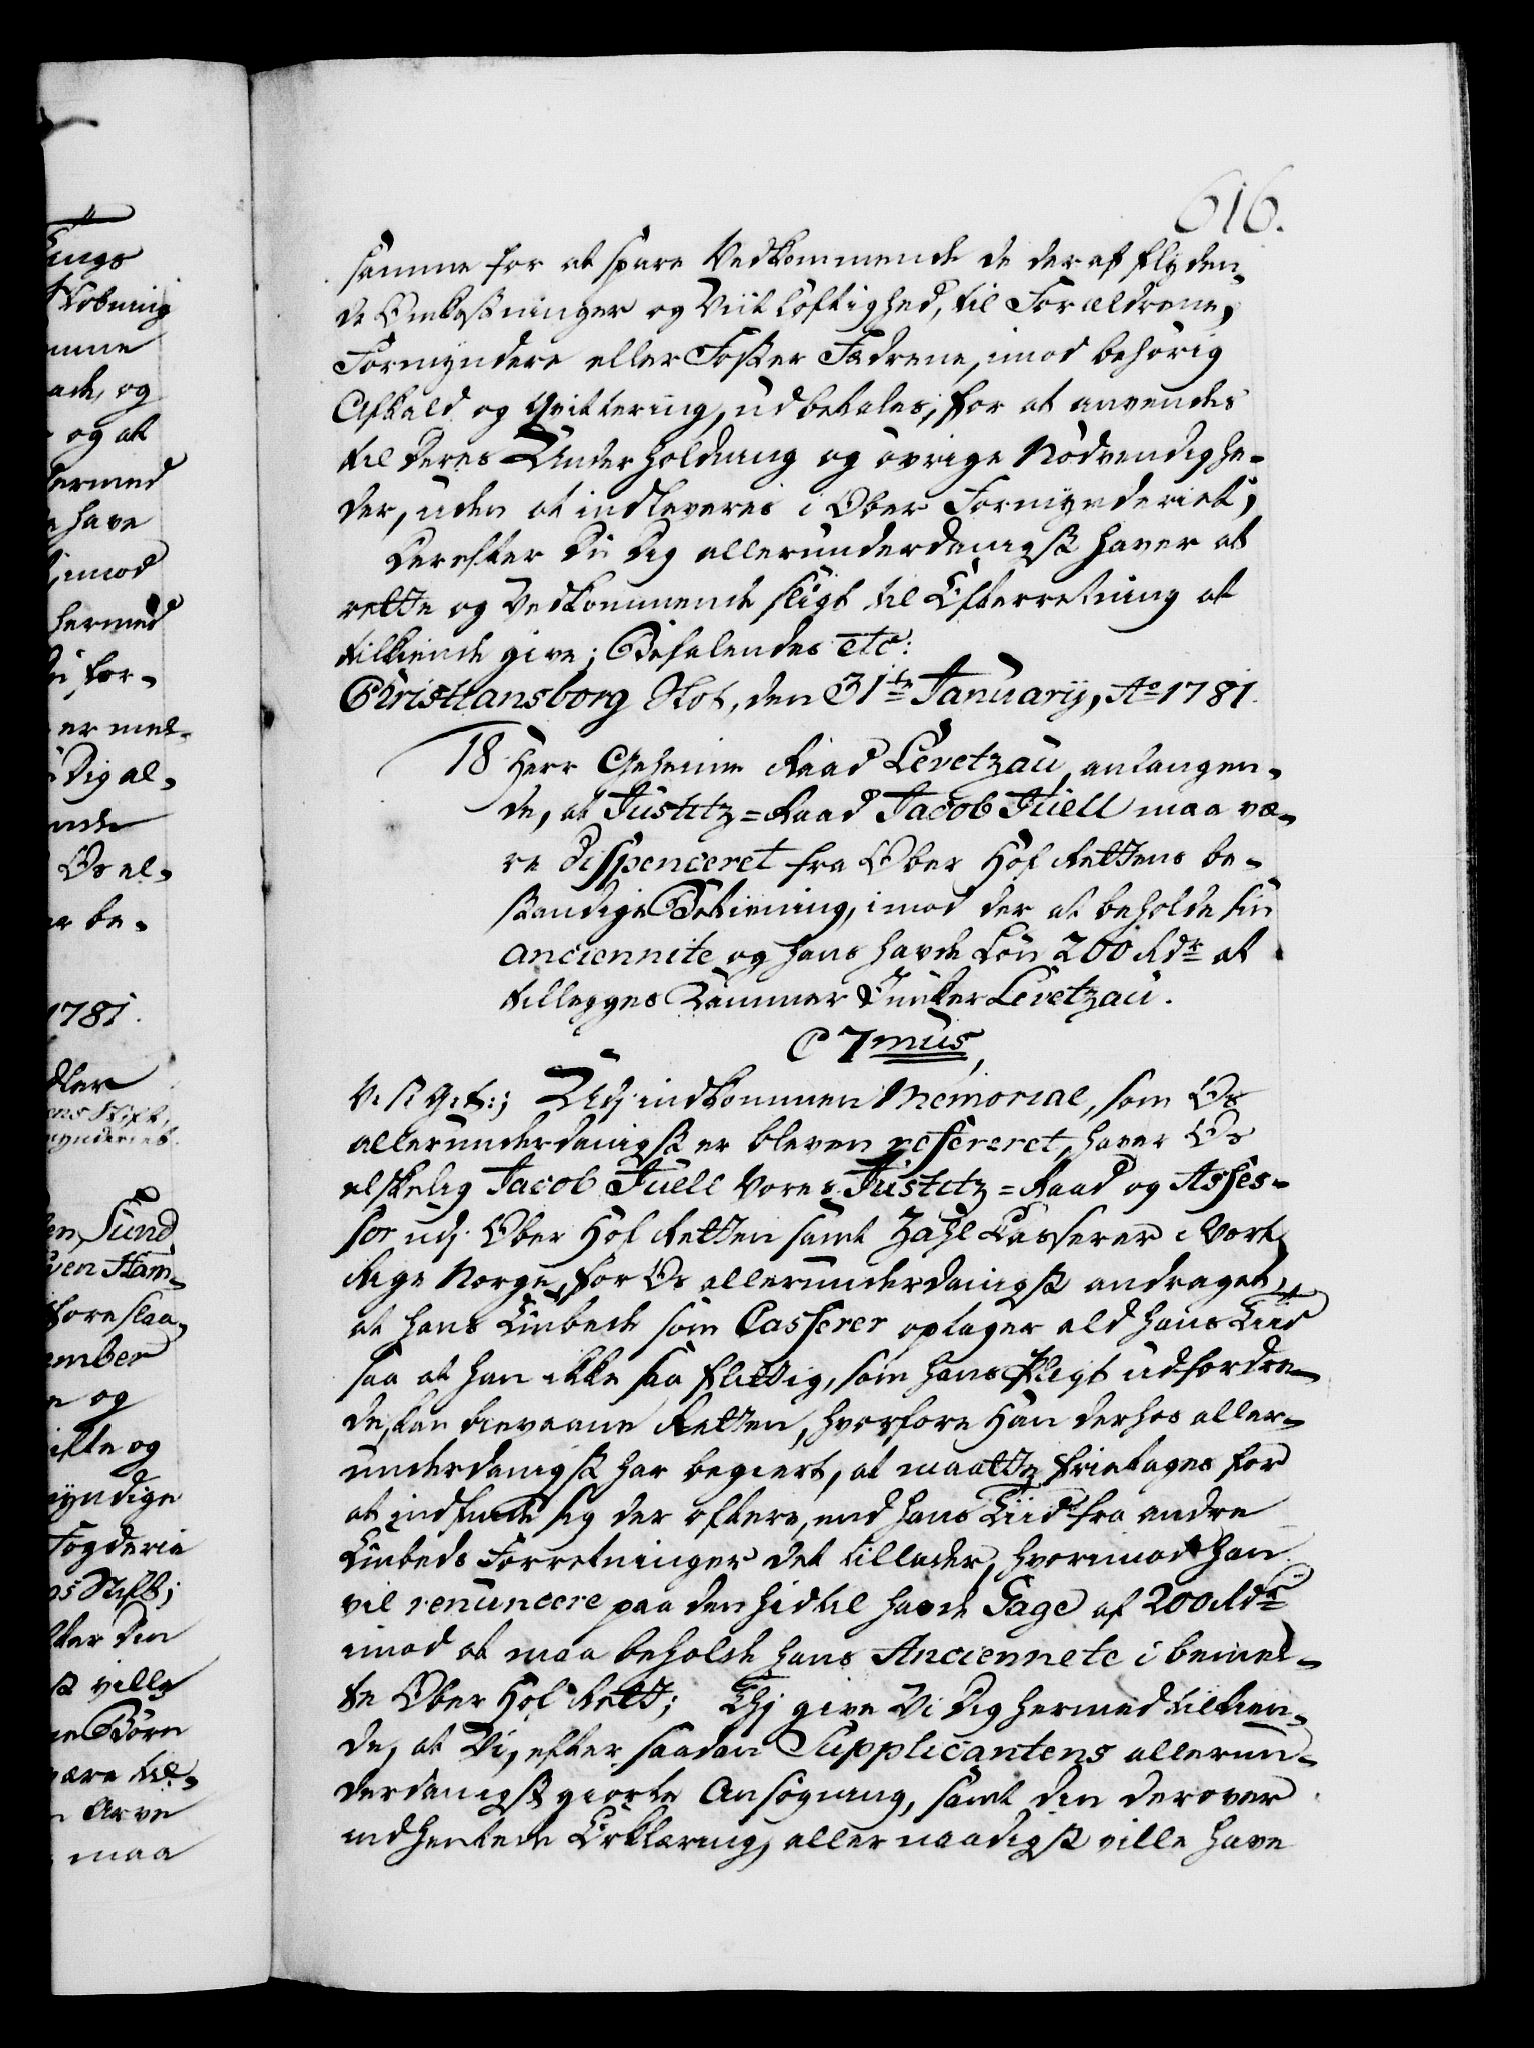 616.
samme for at spare Vedkommende de deraf flyden-
de Omkostninger og Viitløftighed, til Forældrene,
Formyndere eller Foster Fædrene, imod behørig
Afkald og Qvittering, udbetales, for at anvendes
til deres Underholdning og øvrige Nødvendighe-
der, uden at indleveres i Ober Formynderiet;
Derefter Du Dig allerunderdanigst haver at
rette og Vedkommende sligt til Efterretning at
tilkiende give; Befalendes etc:
Christiansborg Slot, den 31te Januarij, Ao 1781.
18 Herr Geheime Raad Levetzau, anlangen-
de, at Justitz=Raad Jacob Juell maa væ-
re dispenceret fra Ober Hof Rettens be-
standige Betiening, imod der at beholde sin
anciennite og hans havde Løn 200 Rdr at
tillegges Kammer Junker Levetzau.
C 7mus,
V. S. G. t.; Udj indkommen Memorial, som Os
allerunderdanigst er bleven refereret, haver Os
elskelig Jacob Juell Vores Justitz=Raad og Asses-
sor udj Ober Hof Retten samt Zahl Casserer i Vort
Rige Norge, for Os allerunderdanigst andraget,
at hans Embede som Casserer optager ald hans Tiid
saa at han ikke saa flittig, som hans Pligt udfordre-
de, kan bievaane Retten, hvorfore Han derhos aller-
underdanigst har begiert, at maatte fritages for
at indfinde sig der oftere, end hans Tiid fra andre
Embeds Forretninger det tillader, hvorimod Han
vil renuncere paa den hidtil havde Gage af 200 Rdr
imod at maa beholde hans Anciennete i bemel-
te Ober Hof Rett; Thj give Vi Dig hermed tilkien-
de, at Vi, efter saadan Supplicantens allerun-
derdanigst giorte Ansøgning, samt den derover
indhentede Erklæring, allernaadigst ville have